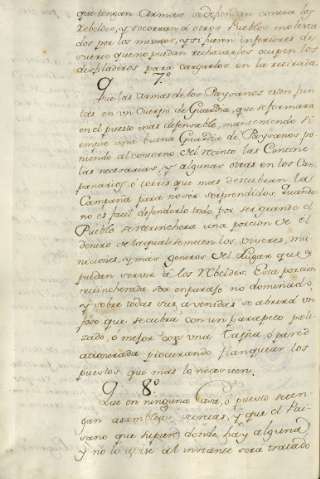 que tengan Armas se defiendan contra los
Rebeldes, y socorran a otros Pueblos molesta
dos por los mismos, y si fueren inferiores de
suerte que no puedan rechazarlos ocupen los
desfiladeros para cargarlos en la retirada
7.º
Que las armas de los Paysanos esten jun
tas en un Cuerpo de Guardia, que se formara
en el puesto mas defensable, manteniendo si
empre una buena Guardia de Paysanos po
niendo al contorno del recinto las Centine
las necesarias y algunas otras en los Cam
panarios o torres que mas descubran la
Campaña para no ser sorprendidos. Quando
no es facil defenderlo todo por ser grande el
Pueblo se atrincherá una porcion de el
dentro de la qual se meten los viveres, mu
niciones, y mas generos del Lugar que
puedan servir a los Rebeldes. Esta porcion
atrincherada sea en parage no dominado,
y sobre todas sus avenidas se abrirá un
foso que se cubra con un parapeto
o mejor con una Tapia ó pared
procurando flanquear los
puestos que mas lo necesiten.
8.º
Que en ninguna Casa, o puesto se ten
gan asambleas, y que el Pai
sano que supiere donde hay alguna
y no lo avise al instante será tratado